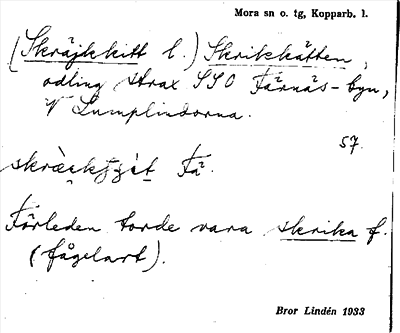 Mora sn o. tg, Kopparb. l.
(Skräjkkitt l.) Skrikkätten,
odling strax SSO Färnäs-byn,
V Lumplindorna.
57.
Fä.
Förleden torde vara skrika f.
(fågelart).
Bror Lindén 1933